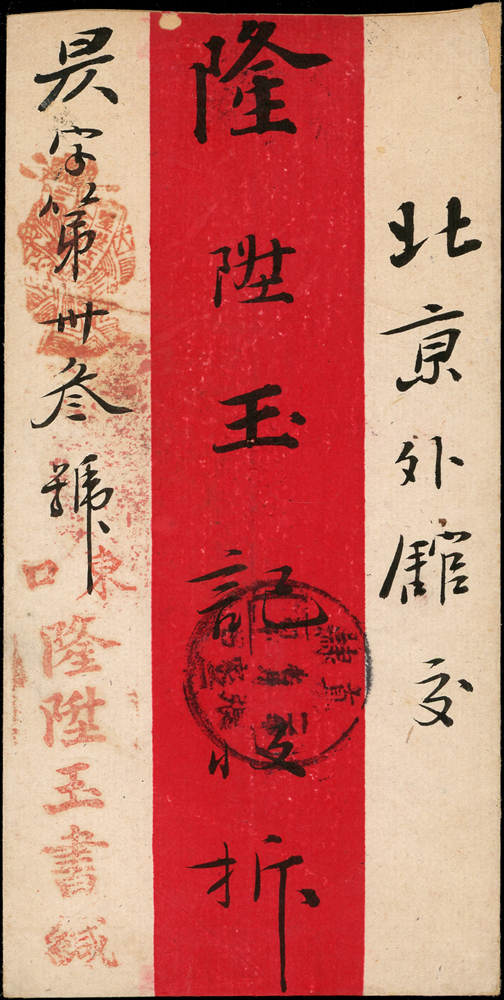 北京外館交
隆陞玉記收拆
昃字第卅叁號
東口
隆陞玉書緘